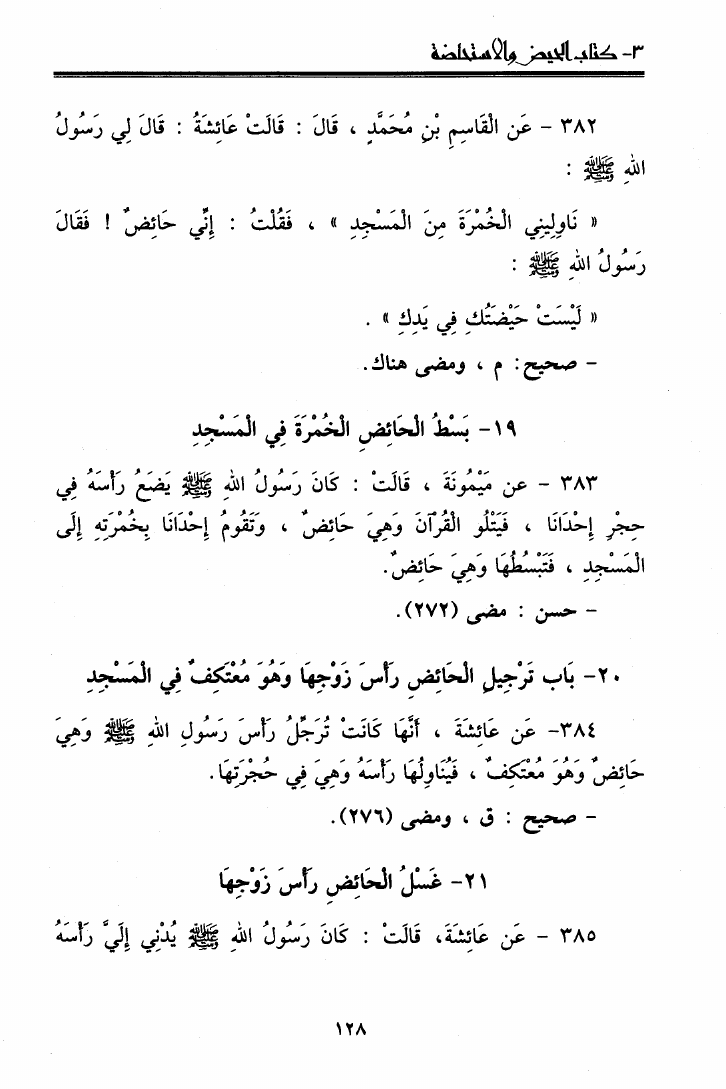 ٣- كتاب الحيض والاستحاضة
٣٨٢ - عَن الْقَاسِمِ بْنِ مُحَمَّدٍ ، قَالَ : قَالَتْ عَائِشَةُ : قَالَ لِي رَسُولُ
اللهِ ﷺ :
« نَاوِلِينِي الْخُمْرَةَ مِنَ الْمَسْجِدِ » ، فَقُلْتُ : إِنِّي حَائِضٌ ! فَقَالَ
رَسُولُ اللهِ ﷺ :
« لَيْسَتْ حَيْضَتُكِ فِي يَدِكِ » .
- صحيح: م ، ومضى هناك.
١٩- بَسْطُ الْحَائِضِ الْخُمْرَةَ فِي الْمَسْجِدِ
٣٨٣ - عن مَيْمُونَةَ ، قَالَتْ : كَانَ رَسُولُ اللهِ ﷺ يَضَعُ رَأْسَهُ فِي
حِجْرِ إِحْدَانَا ، فَيَتْلُو الْقُرْآنَ وَهِيَ حَائِضٌ ، وَتَقُومُ إِحْدَانَا بِخُمْرَتِهِ إِلَى
الْمَسْجِدِ ، فَتَبْسُطُهَا وَهِيَ حَائِضٌ.
- حسن : مضى (٢٧٢).
٢٠- بَاب تَرْجِيلِ الْحَائِضِ رَأْسَ زَوْجِهَا وَهُوَ مُعْتَكِفٌ فِي الْمَسْجِدِ
٣٨٤- عَن عَائِشَةَ ، أَنَّهَا كَانَتْ تُرَجِّلُ رَأْسَ رَسُولِ اللهِ ﷺ وَهِيَ
حَائِضٌ وَهُوَ مُعْتَكِفٌ ، فَيُنَاوِلُهَا رَأْسَهُ وَهِيَ فِي حُجْرَتِهَا.
- صحيح : ق ، ومضى (٢٧٦).
٢١- غَسْلُ الْحَائِضِ رَأْسَ زَوْجِهَا
٣٨٥ - عَن عَائِشَةَ، قَالَتْ : كَانَ رَسُولُ اللهِ ﷺ يُدْنِي إِلَيَّ رَأْسَهُ
١٢٨